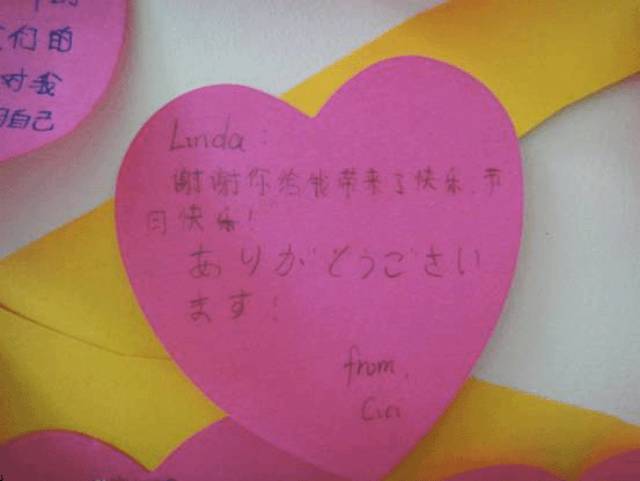 们的
对我
自己
Linda:
谢谢你给我带来了快乐,节
日快乐!
ありがとうございい
ます!
from,